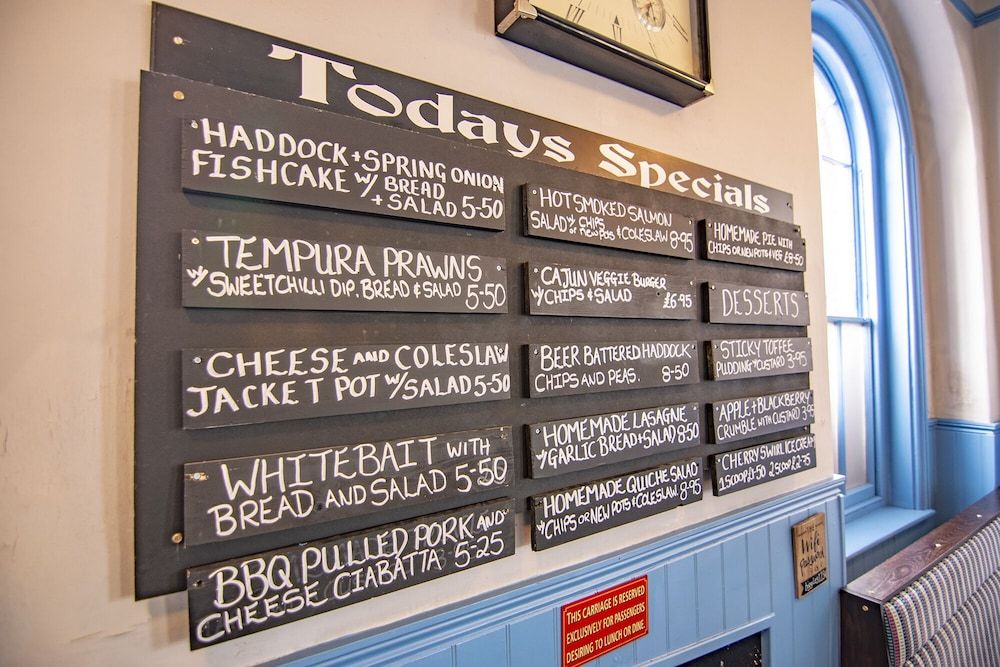 Todays Specials
HADDOCK + SPRING ONION
FISHCAKE W/ BREAD
+ SALAD 5-50
TEMPURA PRAWNS
W/ SWEETCHILLI DIP, BREAD & SALAD 5-50
CHEESE AND COLESLAW
JACKET POT W/ SALAD 5-50
WHITEBAIT WITH
BREAD AND SALAD 5-50
BBQ PULLED PORK AND
CHEESE CIABATTA 5-25
HOT SMOKED SALMON
SALAD W/ CHIPS
OR NEW POTS & COLESLAW 8-95
CAJUN VEGGIE BURGER
W/ CHIPS & SALAD £6-95
BEER BATTERED HADDOCK
CHIPS AND PEAS. 8-50
HOMEMADE LASAGNE
W/ GARLIC BREAD + SALAD 8-50
HOMEMADE QUICHE SALAD
W/ CHIPS OR NEW POTS & COLESLAW 8-95
HOMEMADE PIE W/
CHIPS OR NEW POTS & VEG £8-50
DESSERTS
STICKY TOFFEE
PUDDING W/ CUSTARD 3-95
APPLE + BLACKBERRY
CRUMBLE WITH CUSTARD 3-95
CHERRY SWIRL ICECREAM
1 SCOOP £1-50 2 SCOOP £2-75
THIS CARRIAGE IS RESERVED
EXCLUSIVELY FOR PASSENGERS
DESIRING TO LUNCH OR DINE.
Wifi
Password